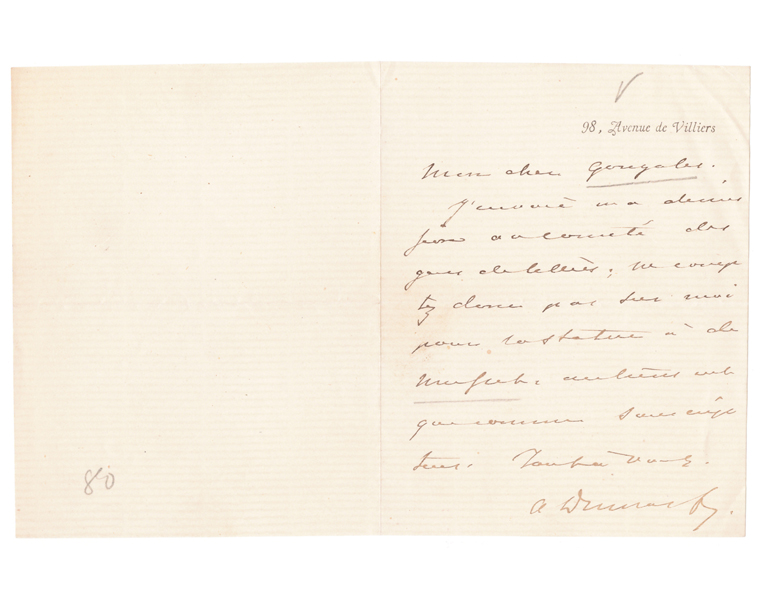 V
98, Avenue de Villiers
Mon cher Gonzales.
J'envoie ma démis
sion au comité des
gens de lettres; ne comp
tez donc pas sur moi
pour la statue à de
Musset. autrement
que comme souscrip
teur. Tout à vous.
A Dumas f.
80